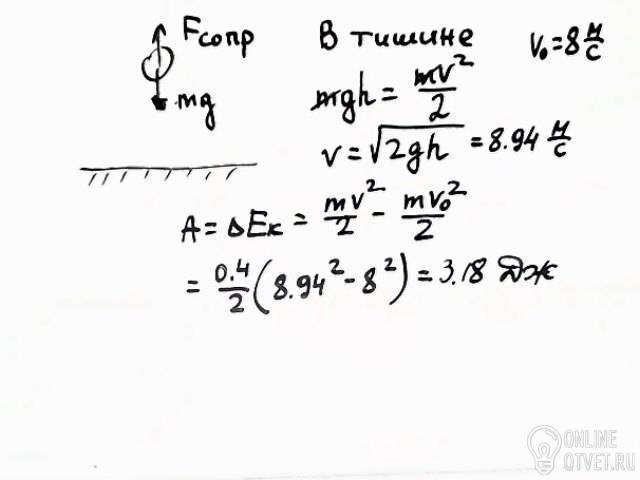 Fсопр В тишине V₀=8 м/с
mg mgh = mv²/2
v = √2gh = 8.94 м/с
A = ΔEк = mv²/2 - mv₀²/2
= 0.4/2 (8.94² - 8²) = 3.18 Дж
ONLINE
OTVET.RU